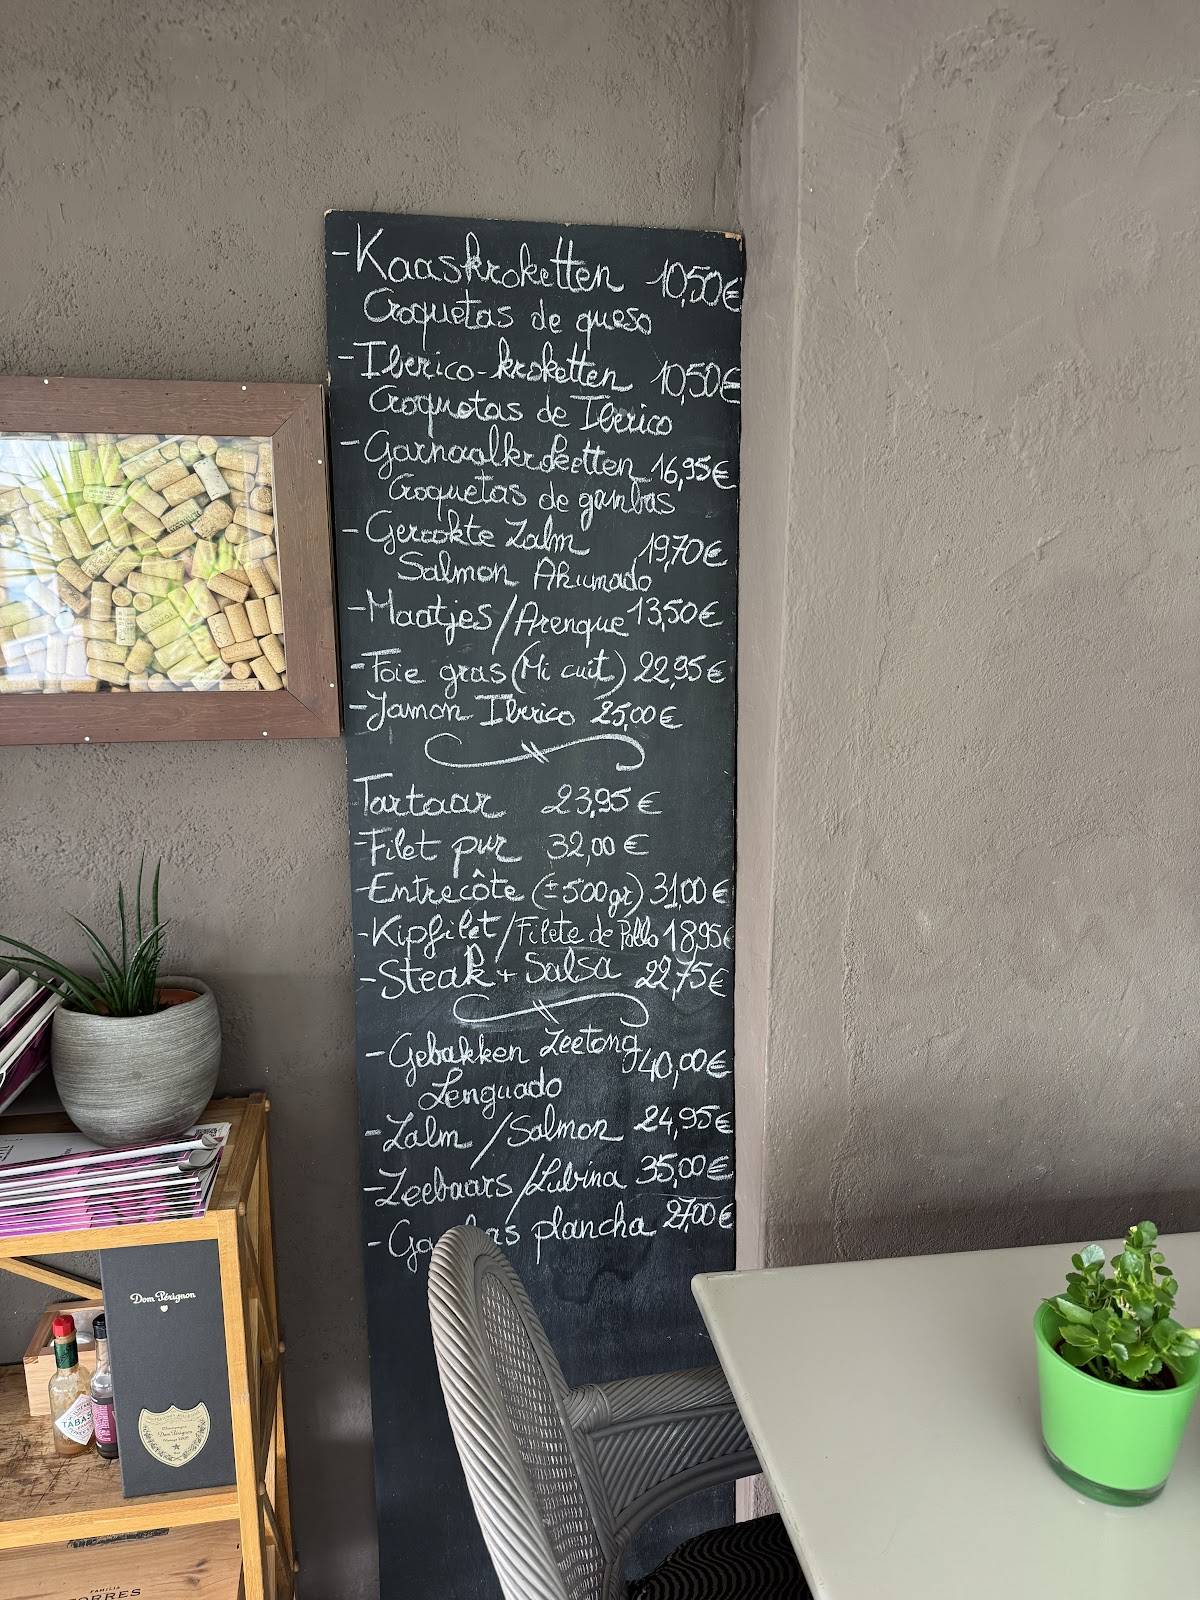 -Kaaskroketten 10,50€
Croquetas de queso
-Iberico-kroketten 10,50€
Croquetas de Iberico
-Garnaalkroketten 16,95€
Croquetas de gambas
-Gerookte Zalm 19,70€
Salmon Ahumado
-Maatjes/Arenque 13,50€
-Foie gras (Mi cuit) 22,95€
-Jamon Iberico 25,00€
Tartaar 23,95€
-Filet pur 32,00€
-Entrecôte (±500gr) 31,00€
-Kipfilet/Filete de Pollo 18,95€
-Steak + Salsa 22,75€
-Gebakken Zeetong 40,00€
Lenguado
-Zalm/Salmon 24,95€
-Zeebaars/Lubina 35,00€
- plancha 27,00€
Dom Pérignon
TABAS
Dom Pérignon
FAMILIA
ORRES